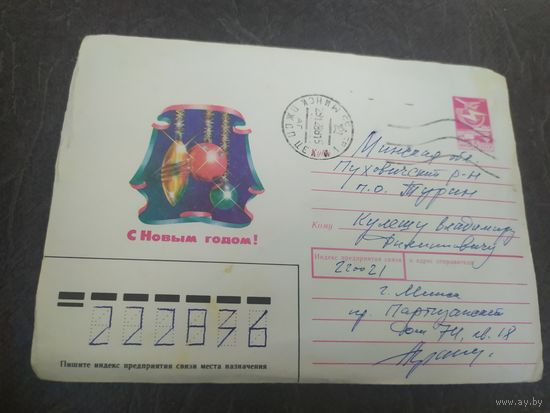 С Новым годом!
МИНСК
Куда
Минская обл.
Пуховичский р-н
п.о. Турин
Кому
Кулешу Владимиру
Индекс предприятия связи и адрес отправителя
220021
г. Минск
пр. Партизанский
дом 74, кв. 18
222836
Пишите индекс предприятия связи места назначения
www.ay.by